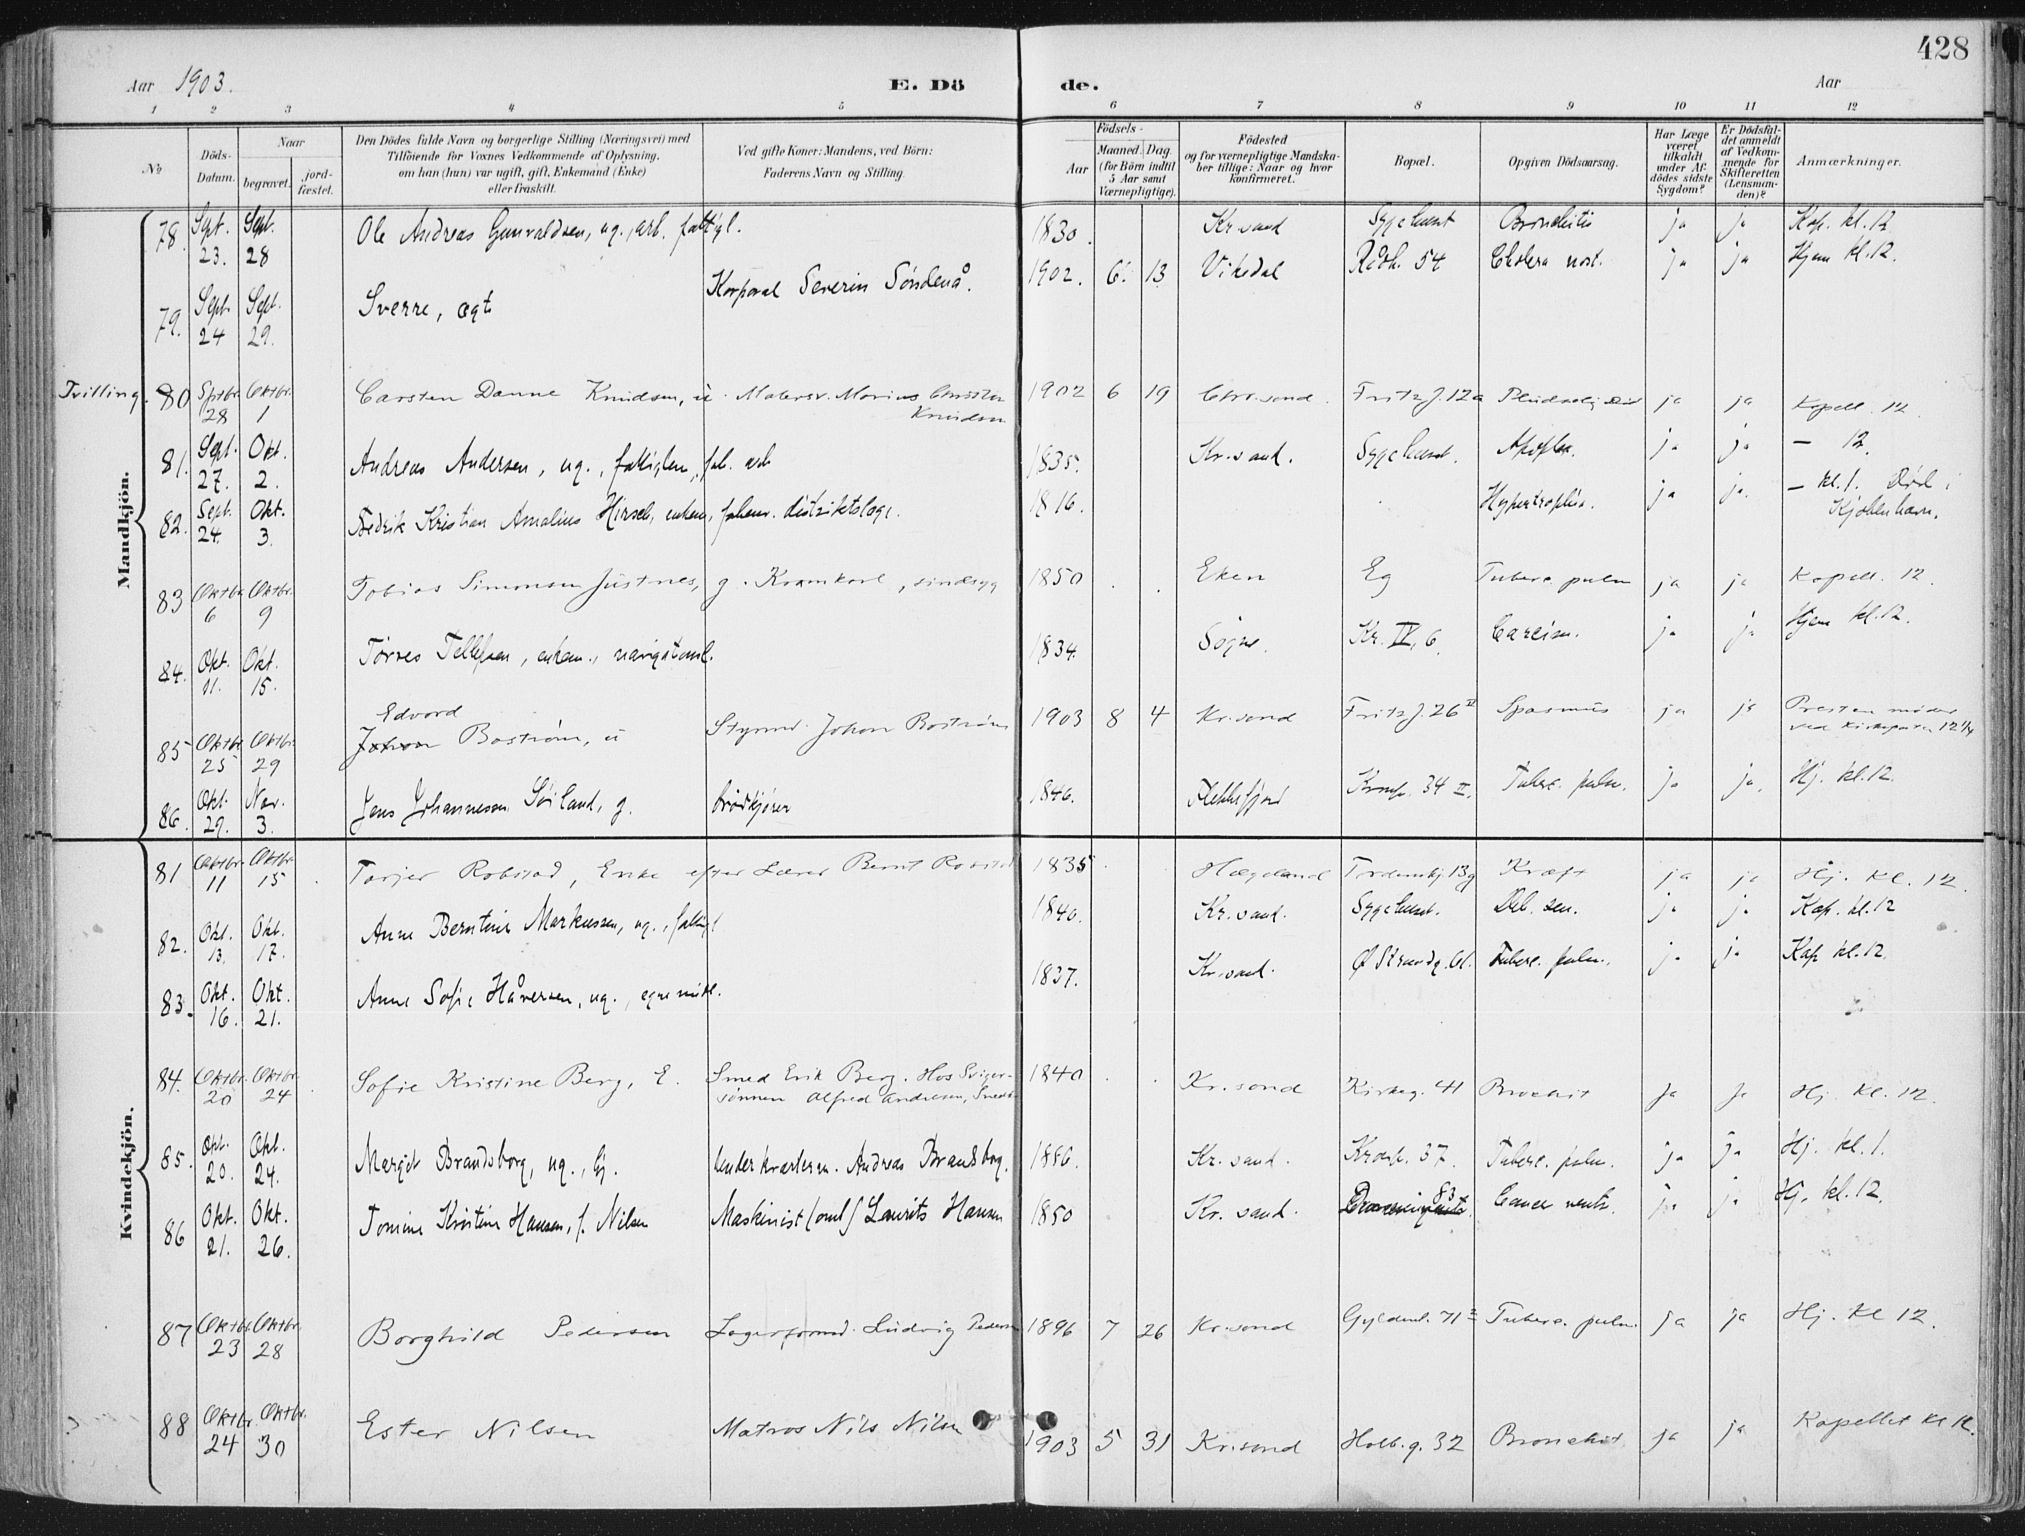 428
Aar 1903.
E. Dö de.
Aar
1 2 3 4 5 6 7 8 9 10 11 12
No
Döds-Datum.
Naar
begravet.
jord-fæstet.
Den Dödes fulde Navn og borgerlige Stilling (Næringsvei) med
Tilföiende for Voxnes Vedkommende af Oplysning,
om han (hun) var ugift, gift, Enkemand (Enke)
eller fraskilt.
Ved gifte Koner: Mandens, ved Börn:
Faderens Navn og Stilling.
Födsels-
Aar
Maaned. Dag.
(for Börn indtil
5 Aar samt
Værnepligtige).
Födested
og for værnepligtige Mandska-
ber tillige: Naar og hvor
konfirmeret.
Bopæl.
Opgiven Dödsaarsag.
Har Læge
været
tilkaldt
under Af-
dödes sidste
Sygdom?
Er Dödsfal-
det anmeldt
af Vedkom-
mende for
Skifteretten
(Lensman-
den)?
Anmærkninger.
Mandkjön.
78. Sept. 23. Sept. 28 Ole Andreas Gunvaldsen, ug., arb. fattigl. 1830. Kr.sand Sygehuset Bronchitis ja ja Kap. kl. 12
79. Sept. 24 Sept. 29. Sverre, ægt Korporal Severin Søndenå. 1902. 6. 13 Vikedal Rådh. 54 Cholera nost. ja ja Hjem kl. 12.
Tvilling. 80 Septbr. 28 Oktbr. 1 Carsten Danne Knudsen, u. Malersv. Marius Christian Knudsen 1902 6 19 Chr.sand. Fritz J. 12a Pludselig Død ja ja Kapell. 12.
81. Sept. 27. Okt. 2. Andreas Andersen, ug., fattiglem, fab. arb 1835. Kr.sand. Sygehuset. Apoplex. ja ja — 12.
82. Sept. 24. Okt. 3. Fredrik Kristian Amalius Hirsch, enkem, forhenv. distriktslæge. 1816. Hypertrophia. ja ja. — kl. 1. Død i Kjøbenhavn.
83 Oktbr. 6 Oktbr. 9 Tobias Simonsen Justnes, g. Kramkarl, sindssyg 1850 Eken Eg Tuberc. pulm ja ja Kapell. 12.
84. Okt. 11. Okt. 15. Tørres Tellefsen, enkem., navigat. 1834. Søgne. Kr. IV, 6. Carcin. ja ja Hjem kl. 12.
85 Oktbr. 25 Oktbr. 29 Edvard Johan Bostrøm, u Styrmd. Johan Bostrøm 1903 8 4 Kr.sand Fritz J. 26 II Spasmus ja ja Presten møder ved Kirkeporten 12 1/4
86. Okt. 29. Nov. 3. Jens Johannessen Søiland, g. brødkjører 1846. Flekkefjord Kronp. 34 II. Tuberc. pulm. ja ja. Hj. kl. 12.
Kvindekjön.
81 Oktbr. 11 Oktbr. 15 Torjer Robstad, Enke efter Lærer Bernt Robstad 1835 Hægeland Tordenskj. 13g Kræft ja ja Hj. kl. 12.
82. Okt. 13. Okt. 17. Anne Berntine Markussen, ug., fattigl 1840. Kr.sand. Sygehuset. Deb. sen. ja ja Kap. kl. 12
83. Okt. 16. Okt. 21. Anne Sofie Håversen, ug., egne midl. 1837. Kr.sand. Ø Strandg. 61. Tuberc. pulm. ja ja Kap kl. 12.
84. Oktbr. 20 Oktbr. 24 Sofie Kristine Berg, E. Smed Erik Berg. Hos Sviger-sønnen Alfred Andresen, Smed 1840 Kr.sand Kirkeg. 41 Bronchit ja ja Hj. kl. 12.
85. Okt. 20. Okt. 24. Margit Brandsborg, ug., hj. Underkvarterm. Andreas Bransborg. 1886. Kr.sand. Kronp. 37. Tuberc. pulm. ja ja Hj. kl. 1.
86 Okt. 21. Okt. 26. Tomine Kristine Hansen, f. Nilsen Maskinist (oml) Laurits Hansen 1850 Kr.sand. 83 Cancer ventr. ja ja Hj. kl. 12.
87 Oktbr. 23 Oktbr. 28 Borghild Pedersen Lagerformd. Ludvig Pedersen 1896 7 26 Kr.sand Gyldenl. 71 Tuberc. pulm. ja ja Hj. kl 12.
88 Oktbr. 24 Oktbr. 30 Ester Nilsen Matros Nils Nilsen 1903 5 31 Kr.sand Holb.g. 32 Bronchit ja ja Kapellet kl 12.